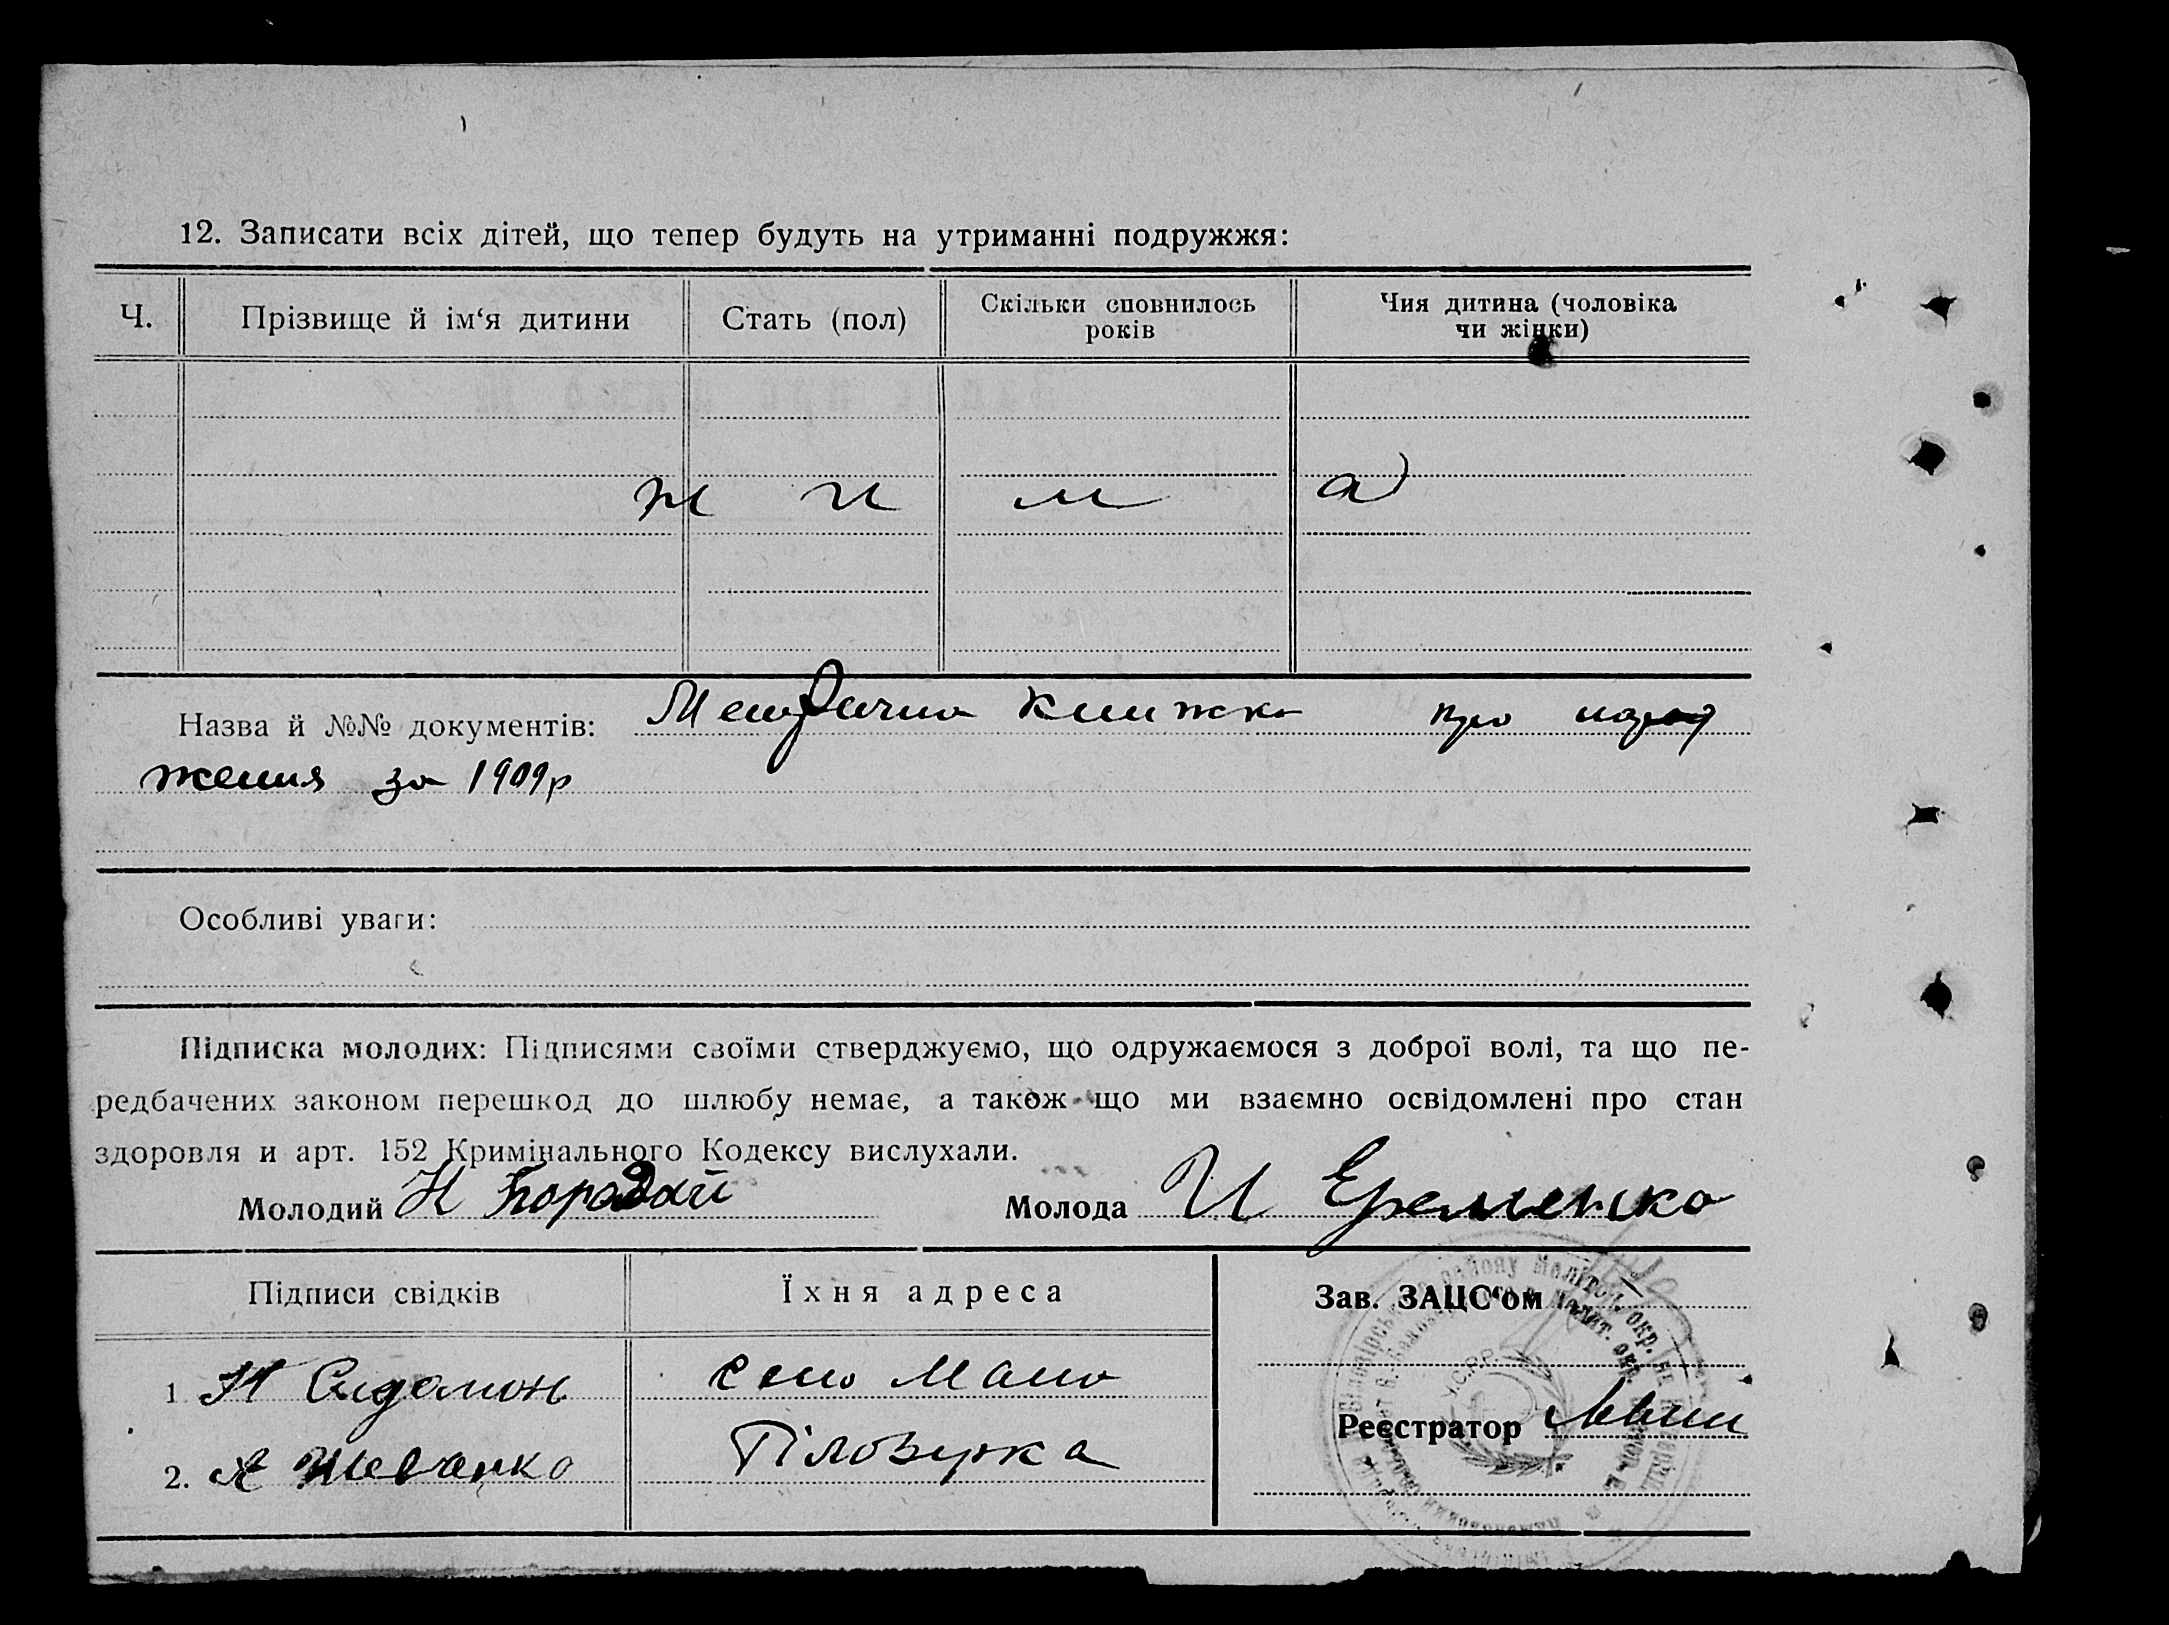 12. Записати всіх дітей, що тепер будуть на утриманні подружжя:
Ч. Прізвище й ім‘я дитини Стать (пол) Скільки сповнилось років Чия дитина (чоловіка чи жінки)
Назва й №№ документів: Метрична книжка про народ
ження за 1909р
Особливі уваги:
Підписка молодих: Підписями своїми стверджуємо, що одружаємося з доброї волі, та що пе-
редбачених законом перешкод до шлюбу немає, а також що ми взаємно освідомлені про стан
здоровля и арт. 152 Кримінального Кодексу вислухали.
Молодий Н Бородай Молода И Еременко
Підписи свідків Їхня адреса Зав. ЗАЦС‘ом
1 село Мало
Реєстратор
2. А Шевченко Білозірка
У.С.Р.Р.